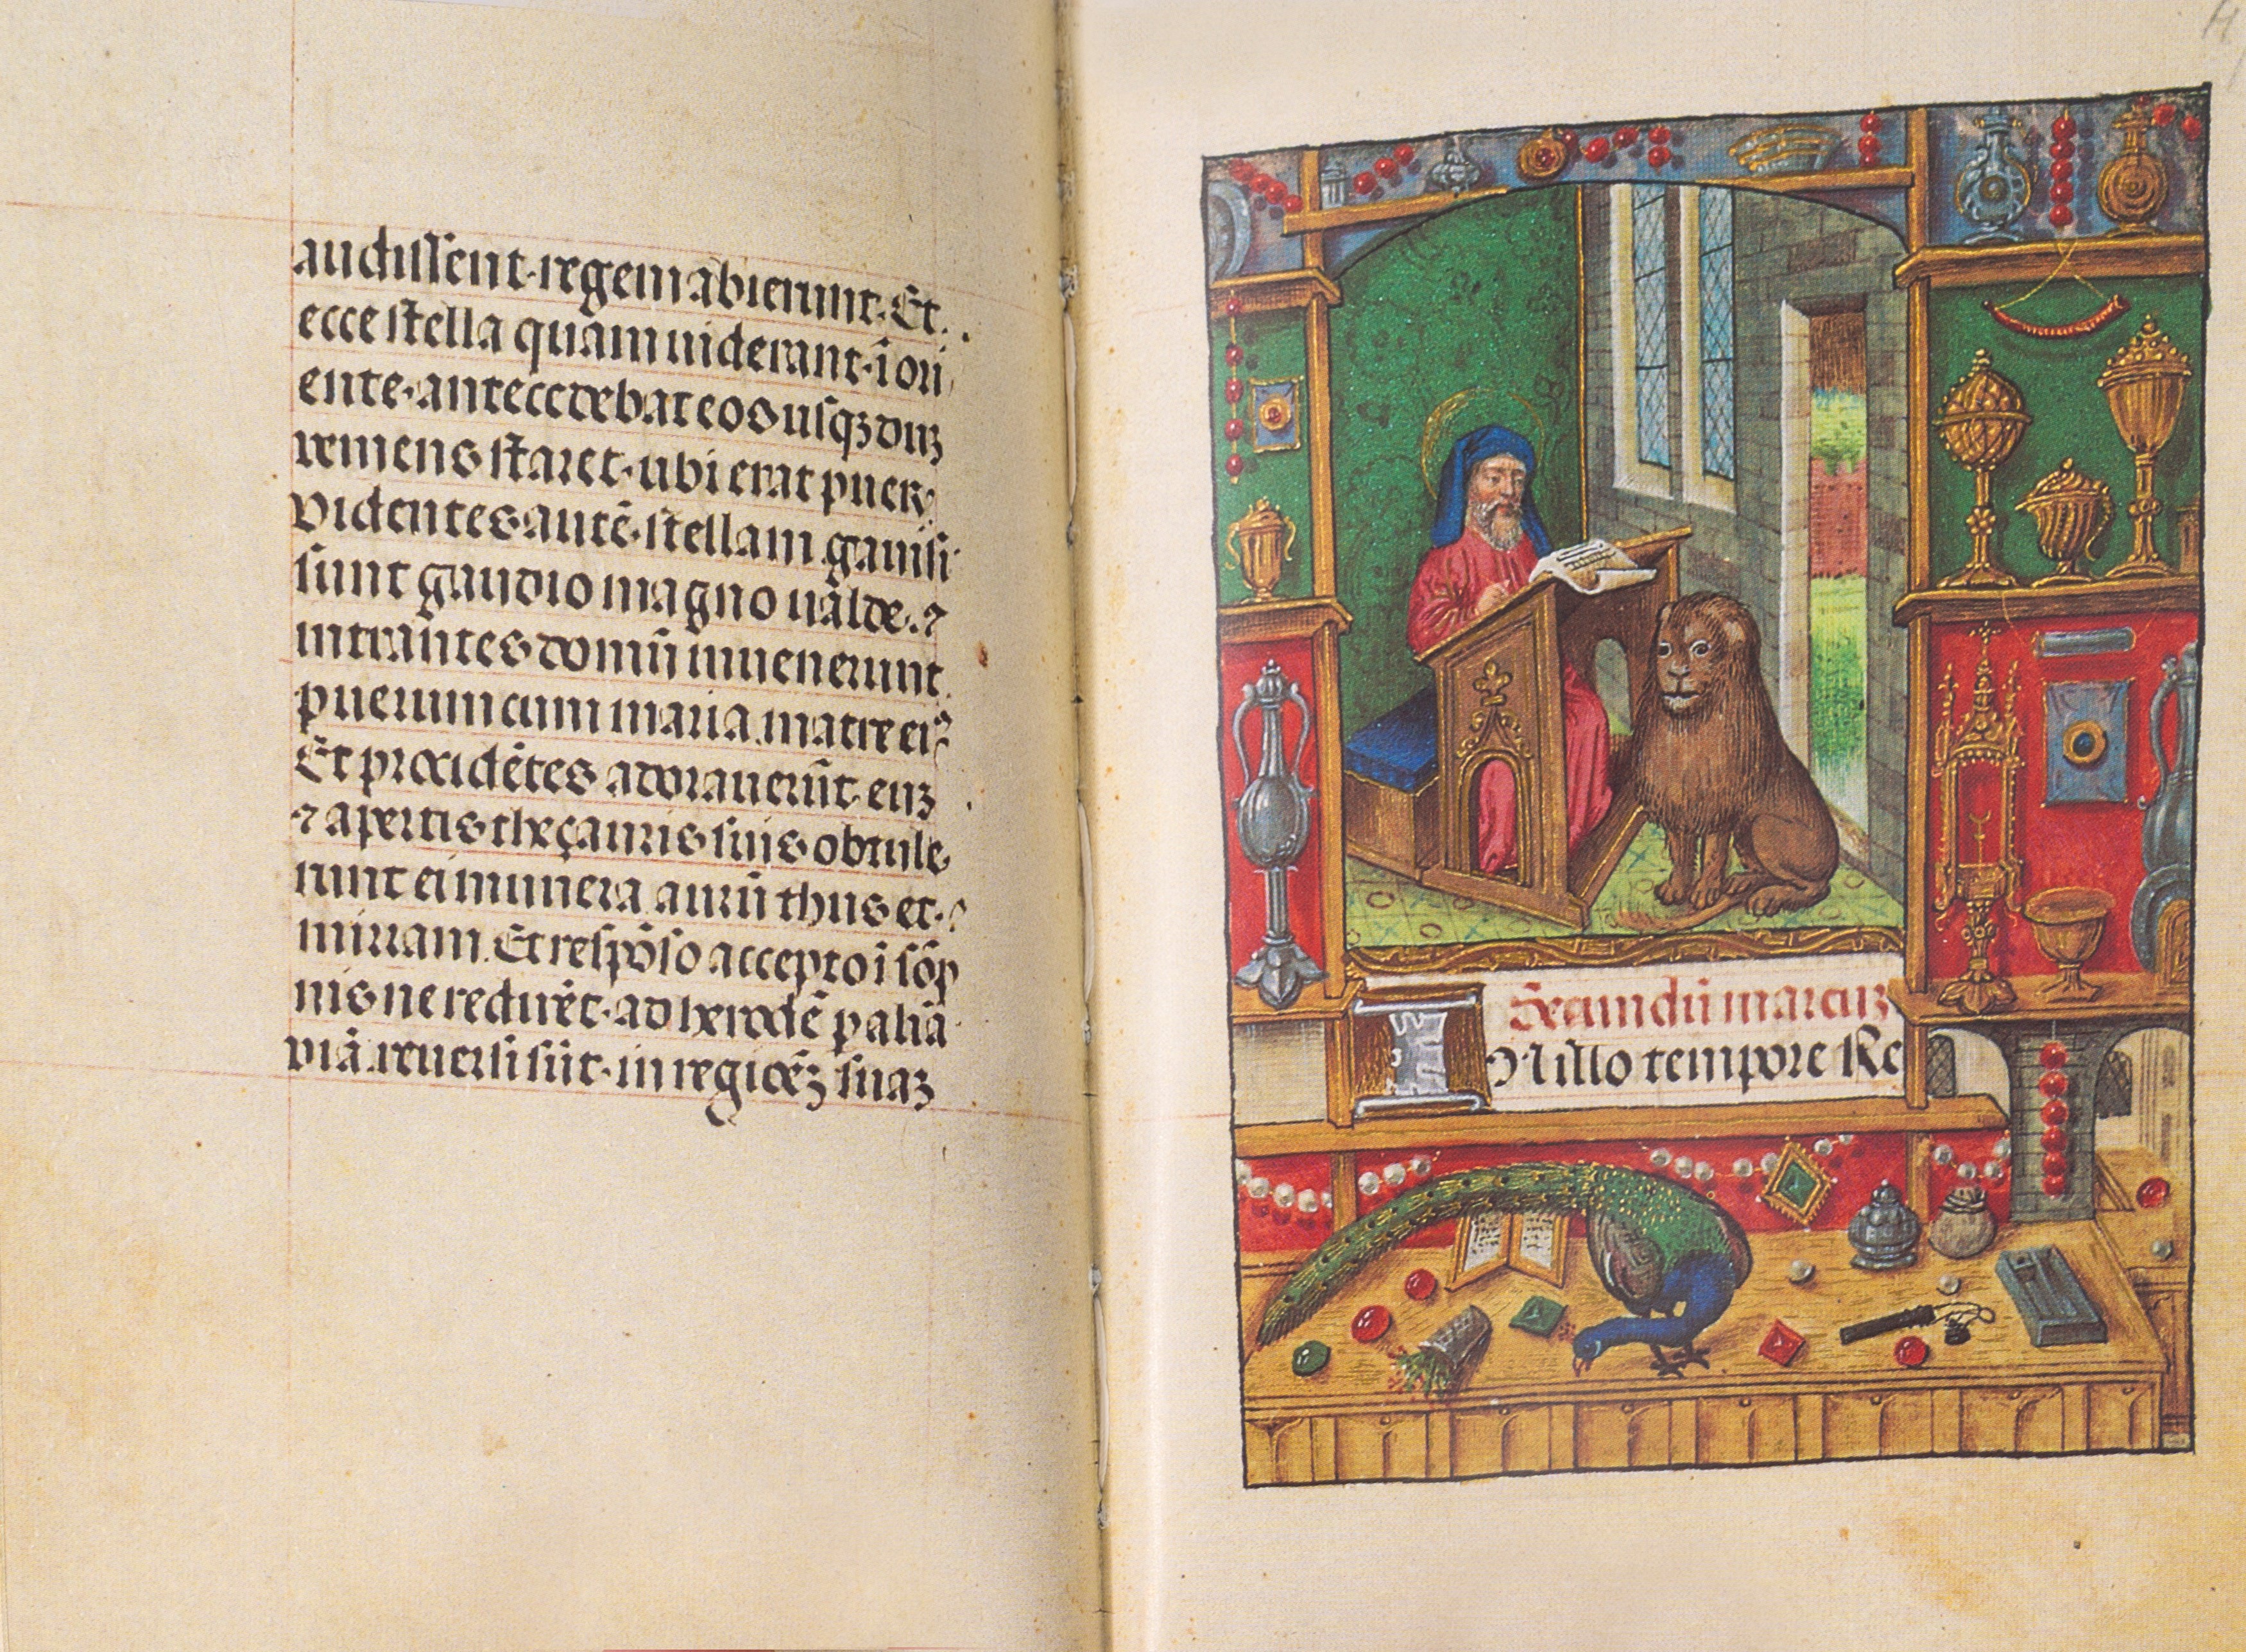 audissent regem abierunt. Et
ecce stella quam uiderant ī ori
ente. antecedebat eos usqꝫ duꝫ
ueniens staret. ubi erat puer.
Videntes autē stellam gauisi
sunt gaudio magno ualde. ⁊
intrantes domū inuenerunt
puerum cum maria matre eiꝰ
Et procidētes adorauerūt euꝫ
⁊ apertis theçauris suis obtule
runt ei munera aurū thus et
mirram. Et respōso accepto ī sōp
nis ne redirēt. ad herodē p aliā
viā reuersi sūt. in regionē suaꝫ
Secundū marcuꝫ
N illo tempore Re